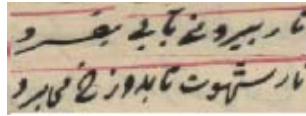 نار بیرونی بآبی بفسرد
نار شهوت تا بدوزخ می برد